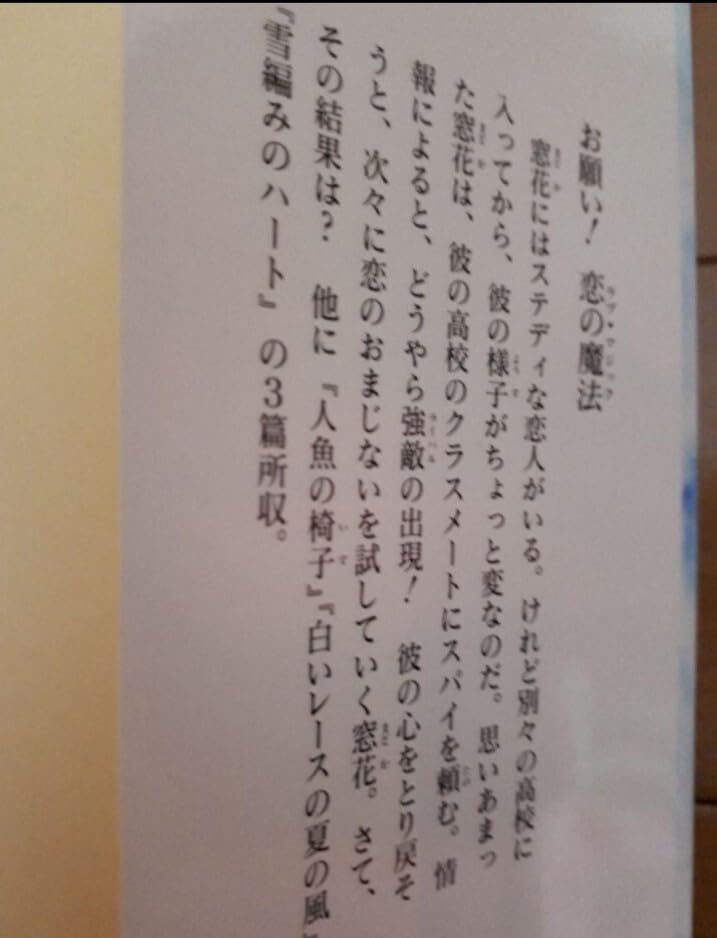 お願い! 恋の魔法
窓花にはステディな恋人がいる。けれど別々の高校に
入ってから、彼の様子がちょっと変なのだ。思いあまっ
た窓花は、彼の高校のクラスメートにスパイを頼む。情
報によると、どうやら強敵の出現! 彼の心をとり戻そ
うと、次々に恋のおまじないを試していく窓花。さて、
その結果は? 他に『人魚の椅子』『白いレースの夏の風』
『雪編みのハート』の3篇所収。